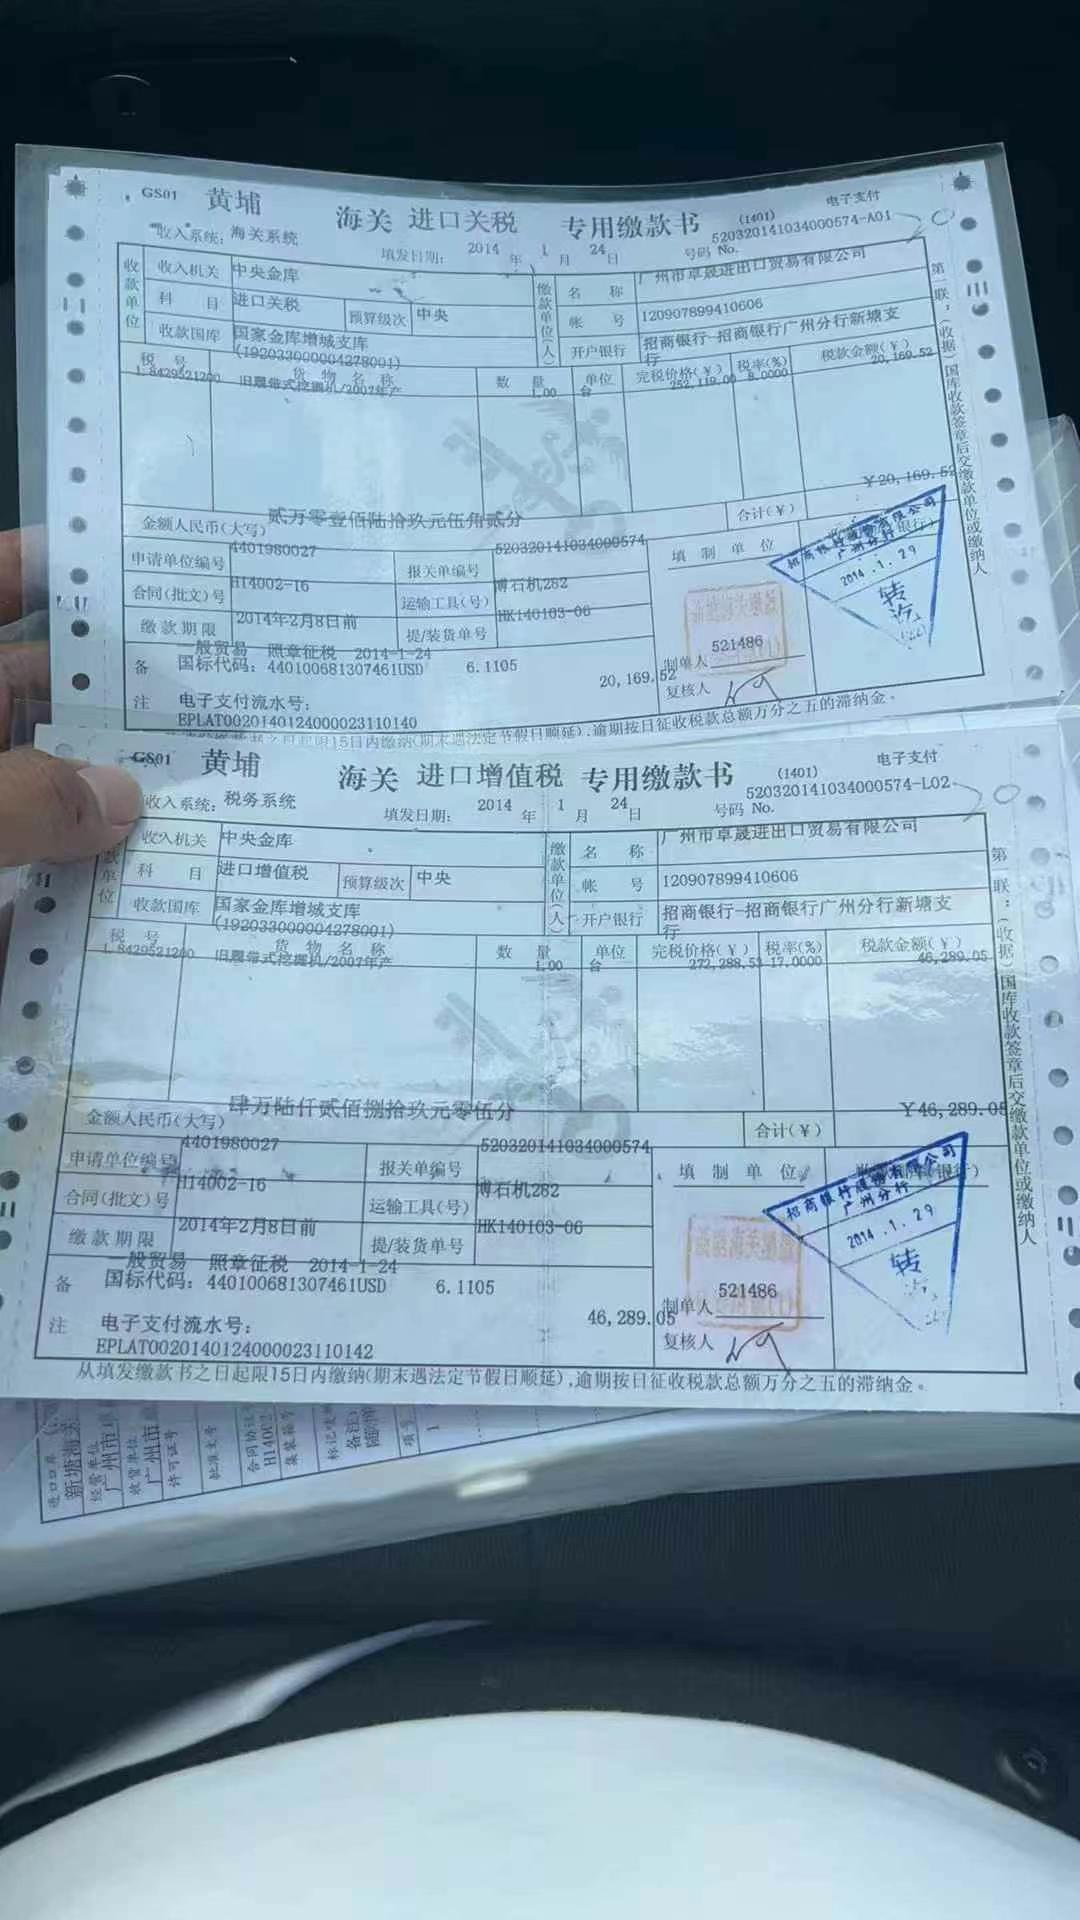 GS01 黄埔 海关 进口关税 专用缴款书 (1401) 电子支付
收入系统：海关系统 填发日期： 2014 年 1 月 24 日 号码 No. 520320141034000574-A01 20
收款单位 收入机关 中央金库 缴款单位(人) 名 称 广州市卓晟进出口贸易有限公司
科 目 进口关税 预算级次 中央 帐 号 120907899410606
收款国库 国家金库增城支库(192033000004278001) 开户银行 招商银行-招商银行广州分行新塘支行
税 号 货 物 名 称 数 量 单位 完税价格(￥) 税率(%) 税款金额(￥)
1.8429521200 旧履带式挖掘机/2007年产 1.00 台 252,119.00 8.0000 20,169.52
金额人民币(大写) 贰万零壹佰陆拾玖元伍角贰分 合计(￥) ￥20,169.52
申请单位编号 4401980027 报关单编号 520320141034000574 填 制 单 位
合同(批文)号 H14002-16 运输工具(号) 博石机282
缴款期限 2014年2月8日前 提/装货单号 HK140103-06
备注 一般贸易 照章征税 2014-1-24
国标代码：440100681307461USD 6.1105 20,169.52
电子支付流水号：
EPLAT002014012400023110140
制单人 521486
复核人
招商银行股份有限公司
广州分行
2014.1.29
转讫
15日内缴纳(期末遇法定节假日顺延),逾期按日征收税款总额万分之五的滞纳金。
第一联：(收据)国库收款签章后交缴款单位或缴纳人
GS01 黄埔 海关 进口增值税 专用缴款书 (1401) 电子支付
收入系统：税务系统 填发日期： 2014 年 1 月 24 日 号码 No. 520320141034000574-L02 20
款单位 收入机关 中央金库 缴款单位(人) 名 称 广州市卓晟进出口贸易有限公司
科 目 进口增值税 预算级次 中央 帐 号 120907899410606
收款国库 国家金库增城支库(192033000004278001) 开户银行 招商银行-招商银行广州分行新塘支行
税 号 货 物 名 称 数 量 单位 完税价格(￥) 税率(%) 税款金额(￥)
1.8429521200 旧履带式挖掘机/2007年产 1.00 台 272,288.53 17.0000 46,289.05
金额人民币(大写) 肆万陆仟贰佰捌拾玖元零伍分 合计(￥) ￥46,289.05
申请单位编号 4401980027 报关单编号 520320141034000574 填 制 单 位
合同(批文)号 H14002-16 运输工具(号) 博石机282
缴款期限 2014年2月8日前 提/装货单号 HK140103-06
备注 一般贸易 照章征税 2014-1-24
国标代码：440100681307461USD 6.1105 46,289.05
电子支付流水号：
EPLAT002014012400023110142
制单人 521486
复核人
招商银行股份有限公司
广州分行
2014.1.29
转
从填发缴款书之日起限15日内缴纳(期末遇法定节假日顺延),逾期按日征收税款总额万分之五的滞纳金。
第一联：(收据)国库收款签章后交缴款单位或缴纳人
进口口岸
新塘海关
经营单位
广州市
收货单位
广州市
许可证号
批准文号
合同协议号
H14002
集装箱号
备注
项号
1